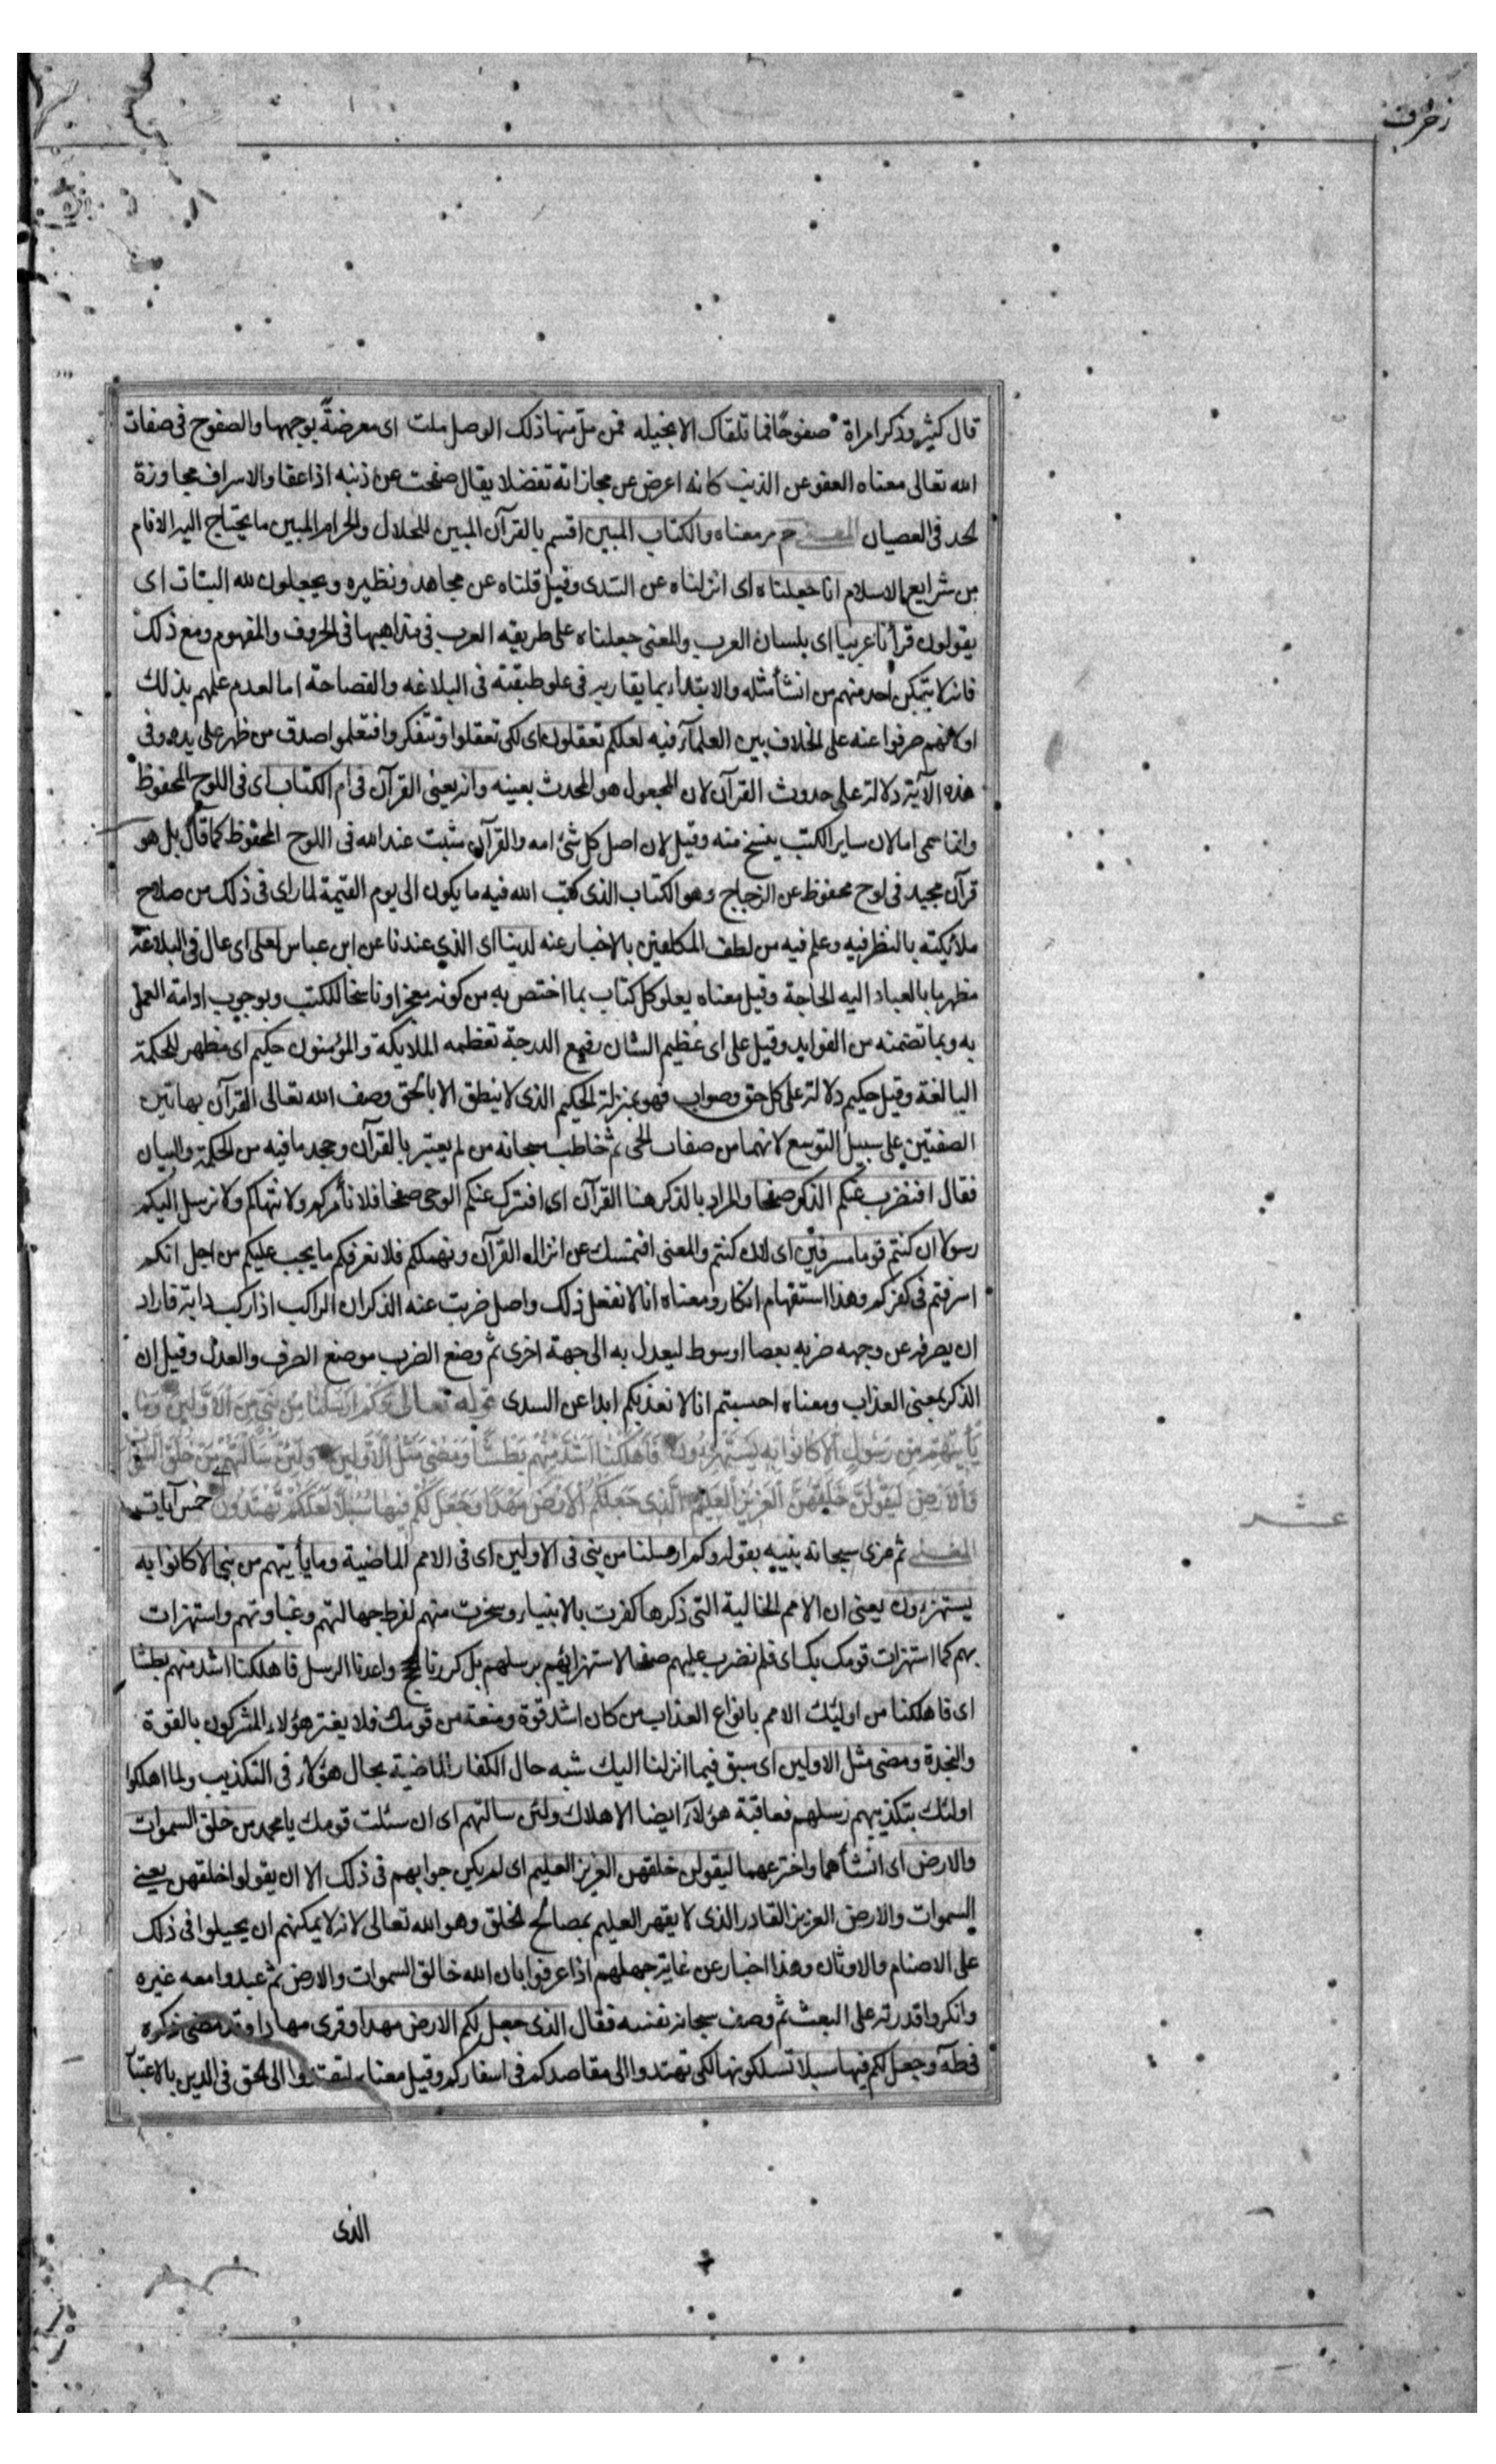 زخرف
قال كثير وذكر امراة صفوحًا فما تلقاك الا بخيله فمن ملّ منها ذلك الوصل ملت اى معرضةً بوجهها والصفوح فى صفات
الله تعالى معناه العفو عن الذنب كانه اعرض عن مجازاته تفضلا يقال صفحت عن ذنبه اذا عفا والاسراف مجاوزة
لحد فى العصيان المعنى حم مر معناه والكتاب المبين اقسم بالقرآن المبين للحلال والحرام المبين ما يحتاج اليه الانام
من شرايع الاسلام انا جعلناه اى انزلناه عن السّدى وقيل قلناه عن مجاهد ونظيره ويجعلون لله البنات اى
يقولون قرأنا عربيا اى بلسان العرب والمعنى جعلناه على طريقه العرب فى مذاهبها فى الحروف والمفهوم ومع ذلك
فانه لا يتمكن احد منهم من انشأ مثله والابتداء بما يقاربه فى علو طبقته فى البلاغه والفصاحة اما لعدم علمهم بذلك
او لانهم صرفوا عنه على الخلاف بين العلمآء فيه لعلكم تعقلون اى لكى تعقلوا وتتفكروا فتعلموا صدق من ظهر على يده وفى
هذه الآية دلالة على حدوث القرآن لان المجعول هو المحدث بعينه وانه يعنى القرآن فى ام الكتاب اى فى اللوح المحفوظ
وانما سمى اما لان ساير الكتب ينسخ منه وقيل لان اصل كل شئ امه والقرآن مثبت عند الله فى اللوح المحفوظ كما قال بل هو
قرآن مجيد فى لوح محفوظ عن الزجاج وهو الكتاب الذى كتب الله فيه ما يكون الى يوم القيمة لما راى فى ذلك من صلاح
ملائكيته بالنظر فيه وعلم فيه من لطف المكلفين بالاخبار عنه لدينا اى الذى عندنا عن ابن عباس لعلى اى عال فى البلاغة
مظهر ما بالعباد اليه الحاجة وقيل معناه يعلو كل كتاب بما اختص به من كونه معجزا وناسخا للكتب وبوجوب ادامة العمل
به وبما تضمنه من الفوايد وقيل على اى عظيم الشان رفيع الدرجة تعظمه الملايكة والمؤمنون حكيم اى مظهر للحكمة
البالغة وقيل حكيم دلالة على كل حق وصواب فهو بمنزلة الحكيم الذى لا ينطق الا بالحق وصف الله تعالى القرآن بهاتين
الصفتين على سبيل التوسع لانهما من صفات الحى ثم خاطب سبحانه من لم يعتبر بالقرآن وجحد ما فيه من الحكمة والبيان
فقال افنضرب عنكم الذكر صفحا والمراد بالذكر هنا القرآن اى افنترك عنكم الوحى صفحا فلا نأمركم ولا ننهاكم ولا نرسل اليكم
رسولا ان كنتم قوما مسرفين اى لان كنتم والمعنى افنمسك عن انزال القرآن ونهملكم فلا نعرفكم ما يجب عليكم من اجل انكم
اسرفتم فى كفركم وهذا استفهام انكار ومعناه انا لا نفعل ذلك واصل ضربت عنه الذكر ان الراكب اذا ركب دابة فاراد
ان يصرفه عن وجهه ضربه بعصا او سوط ليعدل به الى جهة اخرى ثم وضع الضرب موضع الصرف والعدل وقيل ان
الذكر بمعنى العذاب ومعناه احسبتم انا لا نعذبكم ابدا عن السدى قوله تعالى وَكَمْ اَرْسَلْنَا مِنْ نَبِىٍّ فِى الْاَوَّلِينَ وَمَا
يَأْتِيهِمْ مِنْ رَسُولٍ اِلَّا كَانُوا بِهِ يَسْتَهْزِءُونَ فَاَهْلَكْنَا اَشَدَّ مِنْهُمْ بَطْشًا وَمَضَى مَثَلُ الْاَوَّلِينَ وَلَئِنْ سَاَلْتَهُمْ مَنْ خَلَقَ السَّمٰوَاتِ
وَالْاَرْضَ لَيَقُولُنَّ خَلَقَهُنَّ الْعَزِيزُ الْعَلِيمُ الَّذِى جَعَلَ لَكُمُ الْاَرْضَ مَهْدًا وَجَعَلَ لَكُمْ فِيهَا سُبُلًا لَعَلَّكُمْ تَهْتَدُونَ خمس آيات
عشر
المعنى ثم عزى سبحانه نبيه بقوله وكم ارسلنا من نبى فى الاولين اى فى الامم الماضية وما يأتيهم من نبى الا كانوا به
يستهزءون يعنى ان الامم الخالية التى ذكرها كفرت بالانبياء وسخرت منهم لفرط جهالتهم وغباوتهم واستهزات
بهم كما استهزات قومك بك اى فلم نضرب عليهم صفحا لاستهزائهم برسلهم بل كررنا الحجج واعدنا الرسل فاهلكنا اشد منهم بطشا
اى فاهلكنا من اولئك الامم بانواع العذاب من كان اشد قوة ومنعة من قومك فلا يغتر هؤلاء المشركون بالقوة
والنجدة ومضى مثل الاولين اى سبق فيما انزلنا اليك شبه حال الكفار الماضية بحال هؤلاء فى التكذيب ولما اهلكوا
اولئك بتكذيبهم رسلهم فعاقبة هؤلآء ايضا الاهلاك ولئن سالتهم اى ان سئلت قومك يا محمد من خلق السموات
والارض اى انشأهما واخترعهما ليقولن خلقهن العزيز العليم اى لم يكن جوابهم فى ذلك الا ان يقولوا خلقهن يعنى
السموات والارض العزيز القادر الذى لا يقهر العليم بمصالح الخلق وهو الله تعالى لانه لا يمكنهم ان يحيلوا فى ذلك
على الاصنام والاوثان وهذا اخبار عن غاية جهلهم اذا عرفوا بان الله خالق السموات والارض ثم عبدوا معه غيره
وانكروا قدرته على البعث ثم وصف سبحانه نفسه فقال الذى جعل لكم الارض مهدا وقرى مهادا وقد مضى ذكره
فى طه وجعل لكم فيها سبلا تسلكونها لكى تهتدوا الى مقاصدكم فى اسفاركم وقيل معناه لتهتدوا الى الحق فى الدين بالاعتبا
الذى